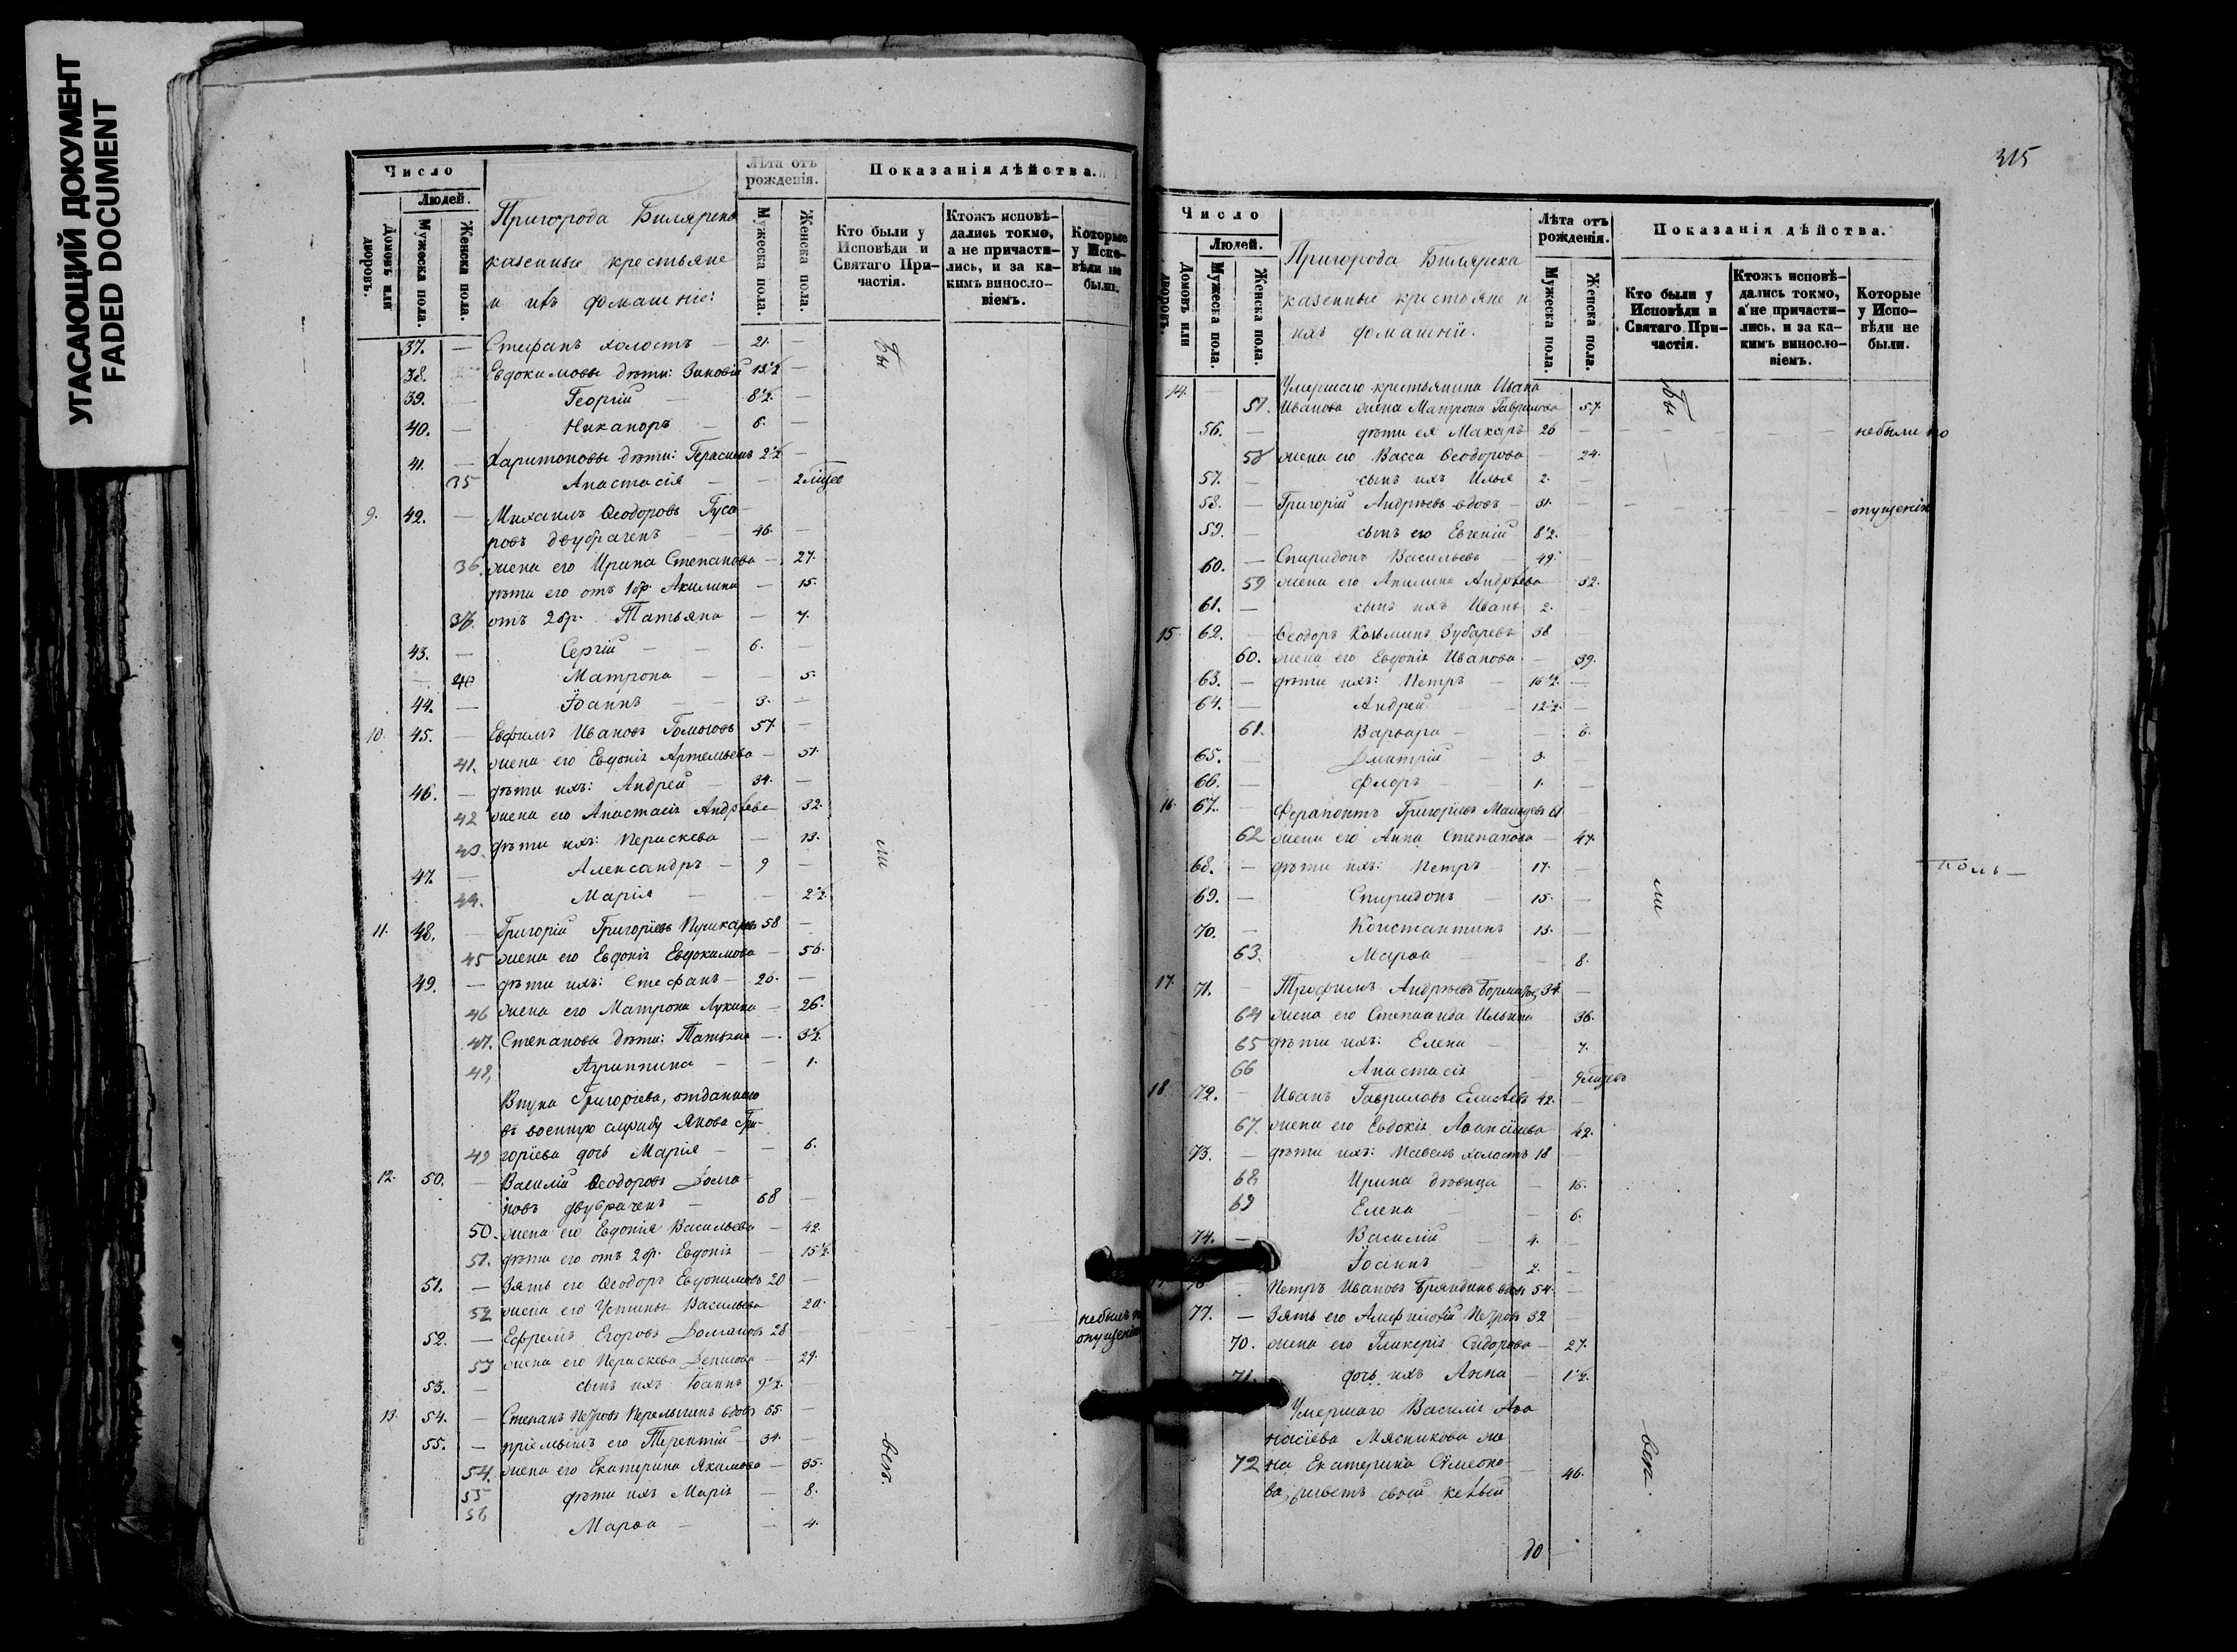 УГАСАЮЩИЙ ДОКУМЕНТ
FADED DOCUMENT
Число
Людей.
Домовъ или дворовъ.
Мужеска пола.
Женска пола.
Пригорода Билярска
казенные крестьяне
и ихъ домашніе:
Лѣта отъ рожденія.
Мужеска пола.
Женска пола.
Показанія дѣйства.
Кто были у Исповѣди и Святаго Причастія.
Ктожъ исповѣдались токмо, а не причастились, и за какимъ винословіемъ.
Которые у Исповѣди не были.
37. — Стефанъ холостъ — 21. —
38. Евдокимовы дѣти: Зиновій 13½ —
39. — Георгій — 8½. —
40. — Никаноръ — 6. —
41. — Харитоновы дѣти: Герасимъ 2½ —
35 Анастасія — — 2
9. 42. — Михаилъ Ѳеодоровъ Гуса-
ровъ двубраченъ — — 46. —
36. жена его Ирина Степанова — 27.
дѣти его отъ 1 бр. Акилина — 15.
отъ 2 бр. Татьяна — 7.
43. — Сергій — — 6. —
— 40 Матрона — — 5.
44. — Іоаннъ — — 3. —
10. 45. — Евфимъ Ивановъ 57. —
41. жена его Евдокія Артемьева — 51.
46. — дѣти ихъ: Андрей — 34. —
42 жена его Анастасія Андрѣева — 32.
43. дѣти ихъ: Параскева — 13.
47. — Александръ — 9 —
44. Марія — — 2½
11. 48. — Григорій Григоріевъ Пушкаревъ 58 —
45 жена его Евдокія Евдокимова — 56.
49. — дѣти ихъ: Стефанъ — 26. —
46 жена его Матрона Лукина — 26.
47. Степановы дѣти: Татьяна — 3½
48, Агриппина — — 1.
Внука Григоріева, отданнаго
въ военную службу Якова Гри-
49 горіева дочь Марія — — 6.
12. 50. — Василій Ѳеодоровъ Долга-
новъ двубраченъ — 68 —
50. жена его Евдокія Васильева — 42.
51. дѣти его отъ 2 бр. Евдокія — 15½
51. — Зять его Ѳеодоръ Евдокимовъ 20 —
52 жена его Устинья Васильева 20.
небылъ по
52. — Ефремъ Егоровъ Долгановъ 28 —
опущенію
53 жена его Параскева Денисова — 29.
53. — сынъ ихъ Іоаннъ 9½. —
13. 54. — Степанъ Петровъ Перелыгинъ вдовъ 65. —
55. — пріемышъ его Терентій — 34. —
54. жена его Екатерина Якимова — 35.
55 дѣти ихъ Марія — 8.
56 Марѳа — — 4.
Бы
ли
всѣ.
315
Число
Людей.
Домовъ или дворовъ.
Мужеска пола.
Женска пола.
Пригорода Билярска
казенные крестьяне и
ихъ домашніи.
Лѣта отъ рожденія.
Мужеска пола.
Женска пола.
Показанія дѣйства.
Кто были у Исповѣди и Святаго Причастія.
Ктожъ исповѣдались токмо, а не причастились, и за какимъ винословіемъ.
Которые у Исповѣди не были.
14. — Умершаго крестьянина Ивана
57. Иванова жена Матрона Гаврилова 57.
56. — дѣти ея Макаръ 26 — — — — — небыли по
58 жена его Васса Ѳеодорова — 24.
57. — сынъ ихъ Илья 2. —
58. — Григорій Андреевъ вдовъ — 31. — — — — — опущенію
59. — сынъ его Евгеній 8½. —
60. — Спиридонъ Васильевъ 49. —
59 жена его Акилина Андрѣева 32.
61. — сынъ ихъ Иванъ 2. —
15. 62. — Ѳеодоръ Козьминъ Зубаревъ 38 —
60. жена его Евдокія Иванова — 39.
63. — дѣти ихъ: Петръ — 16½. —
64. — Андрей — — 12½. —
61. Варвара — — 6.
65. — Димитрій — 3. —
66. — Флоръ — 1. —
16. 67. — Ферапонтъ Григорьевъ 61
62 жена его Анна Степанова — 47.
68. — дѣти ихъ: Петръ — 17. —
69. — Спиридонъ — 15. —
70. — Константинъ 13. —
63. Марѳа — — 8.
17. 71. — Трофимъ Андреевъ 34. —
64 жена его Степанида Ильина 36.
65 дѣти ихъ: Елена — — 7.
66 Анастасія — 9
18 72. — Иванъ Гавриловъ 42. —
67. жена его Евдокія Аѳанасіева 42.
73. — дѣти ихъ: Павелъ холостъ 18 —
68 Ирина дѣвица — 16.
69 Елена — — 6.
74. — Василій — 4. —
Іоаннъ — 2. —
Петръ Ивановъ вдовъ 54. —
77. — Зять его Амфилохій Петровъ 32 —
70. жена его Гликерія Сидорова — 27.
71. дочь ихъ Анна — 1½.
Умершаго Василія Аѳа-
насіева Мясникова же-
72 на Екатерина Сѵмеоно- — 46.
ва, живетъ своей кельей
Бы
ли
всѣ.